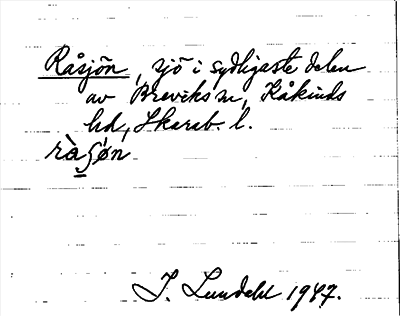 Råsjön, sjö i sydligaste delen
av Breviks sn, Kåkinds
hd, Skarab. l.
rà̱ʃøn
I. Lundahl 1947.